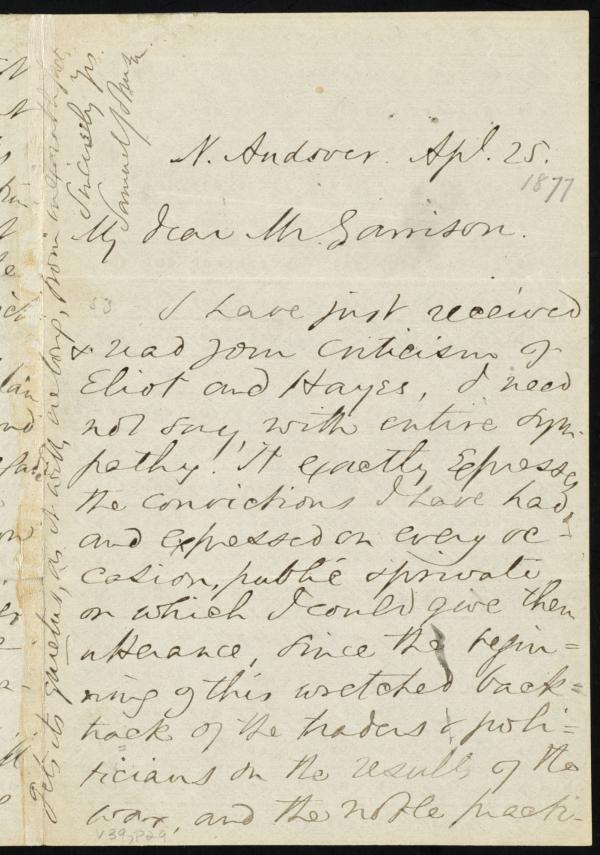 N. Andover. Apl. 25.
1877
My dear Mr. Garrison.
53
I have just received
& read your criticism of
Eliot and Hayes, I need
not say, with entire sym-
pathy. It exactly expresses
the convictions I have had,
and expressed on every oc-
casion, public & private,
on which I could give them
utterance, since the begin=
ning of this wretched back=
track of the traders & poli=
ticians on the results of the
war, and the noble practi-
V39, P29
gets its quietus, as it will, ere long, from
Sincerely yrs.
Samuel Johnson